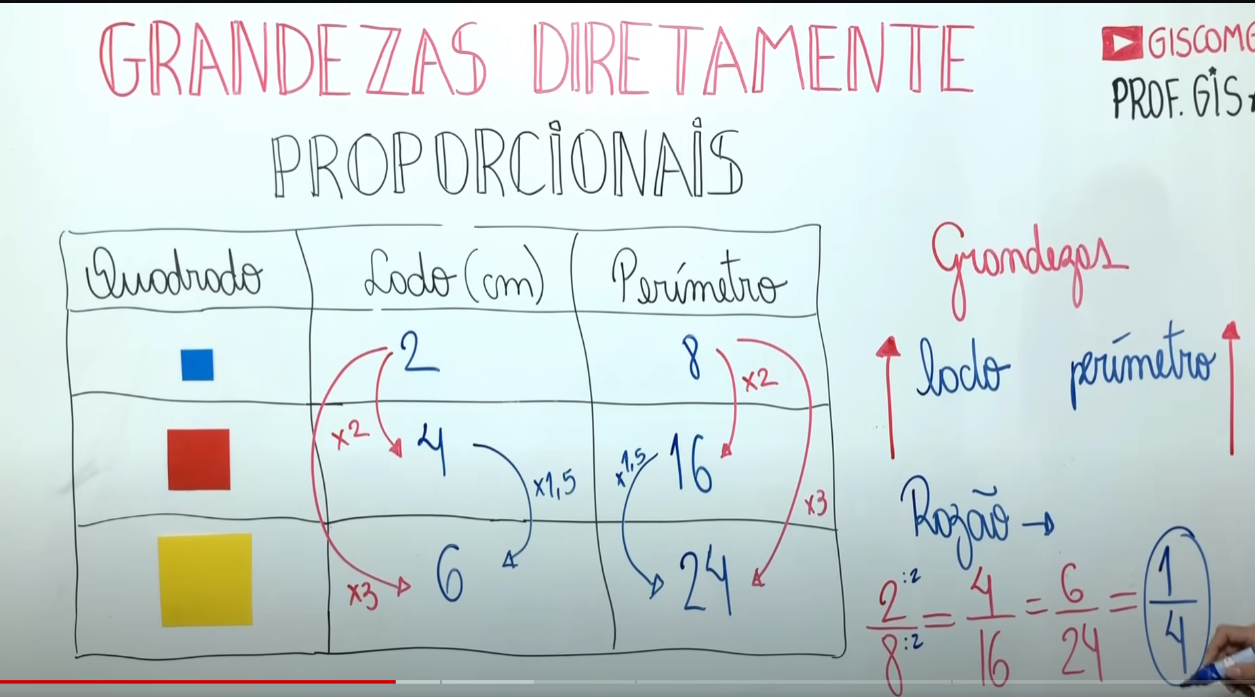 GRANDEZAS DIRETAMENTE
PROPORCIONAIS
GISCOM
PROF. GIS
Quadrado Lado (cm) Perímetro
2 8
x2 x2
4 16
x1,5 x1,5
x3
6 24
x3
Grandezas
lado perímetro
Razão →
2:2/8:2 = 4/16 = 6/24 = 1/4